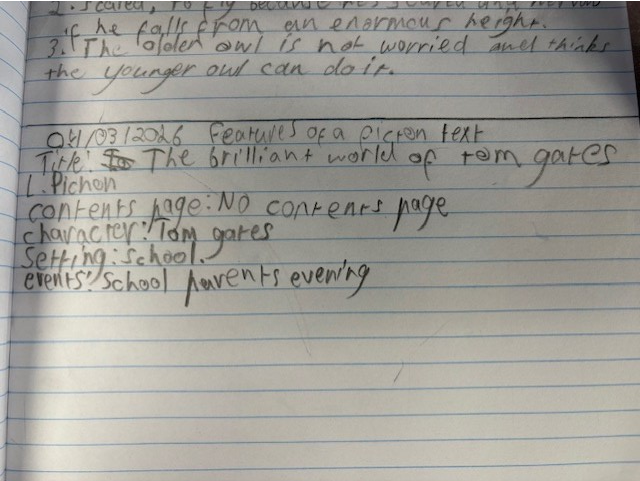 2. scared, to fly because he's scared and nervous
if he falls from an enormous height.
3. The older owl is not worried and thinks
the younger owl can do it.
04/03/2026 Features of a ficton text
Title: The brilliant world of tom gates
L. Pichon
contents page: No contents page
character: Tom gates
Setting: school.
events: School parents evening